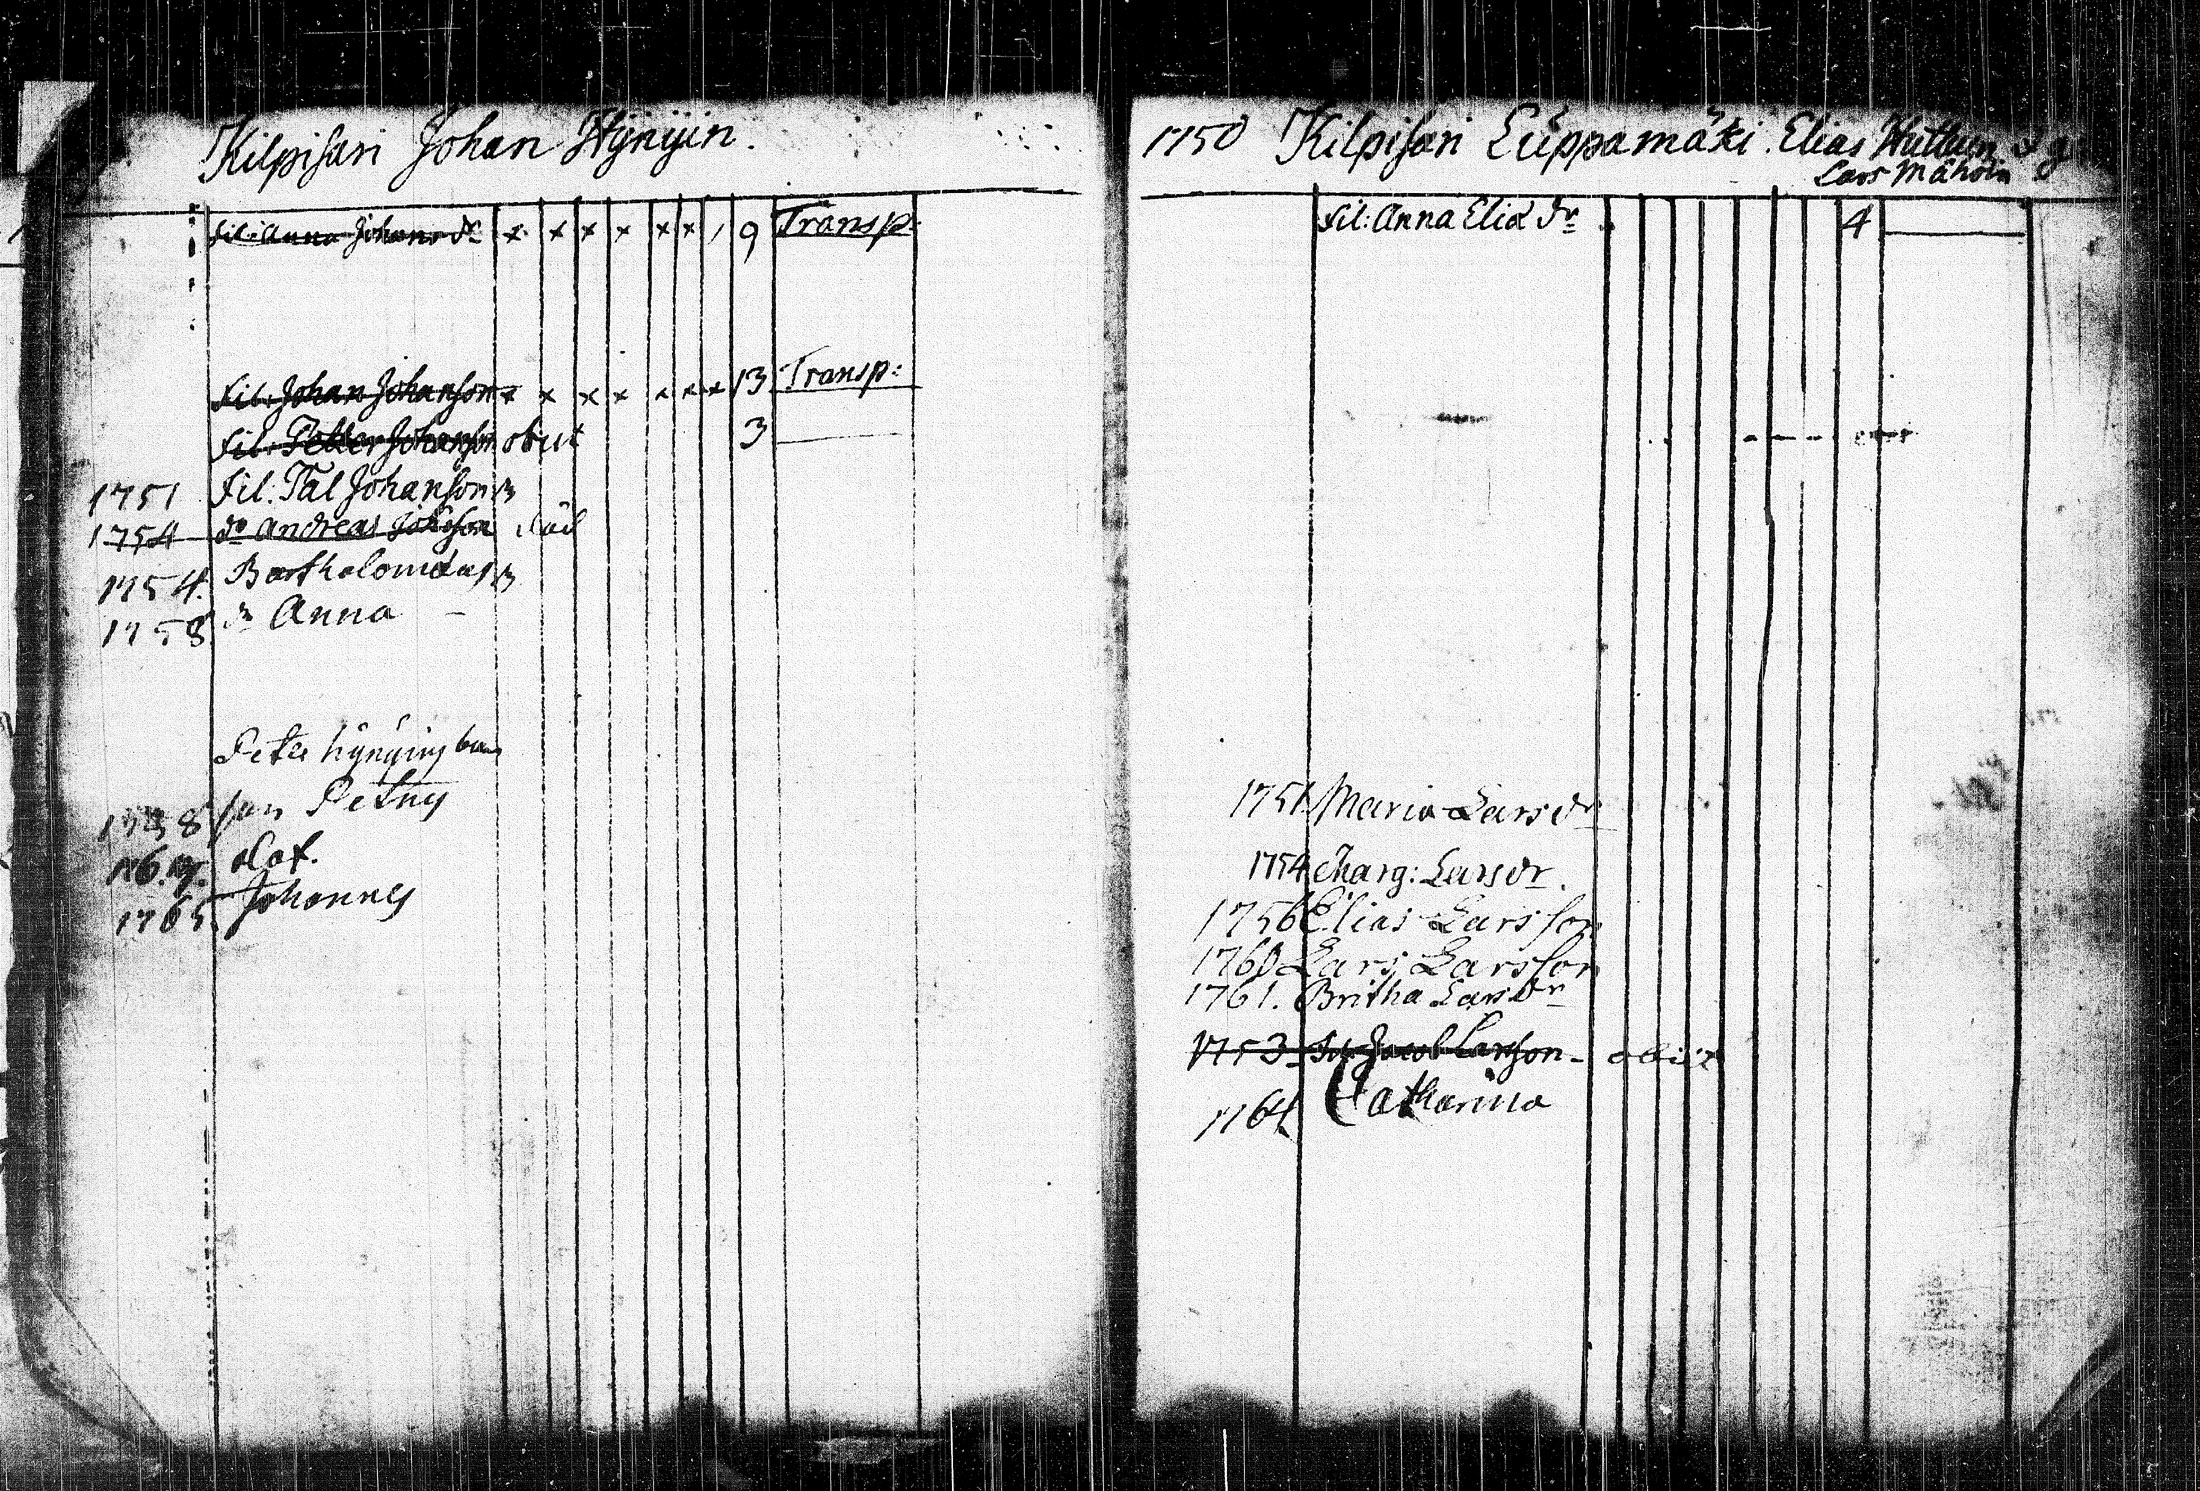 Kilpisari Johan Hÿnÿin.
Fil: Anna Johans dr x x x x x x / 9 Transp:
Fil: Johan Johanson x x x x x x x 13 Transp:
Fil: Petter Johanson obiit 3
1751 Fil. Pål Johanson
1754 do Andreas Johanson död
1754. Bartholomæus
1758 Anna
Peter hÿnÿins barn
Petrus
Olof.
1765. Johannes
1750 Kilpisari Luppamäki. Elias Huttuin &
Lars Mähöin
Fil: Anna Eliæ dr 4
1751. Maria Lars dr
1754 Marg: Lars dr.
1756 Elias Larsson
1760 Lars Larsson
1761. Britha Lars dr
1753 Jacob Larsson - obiit
1764 Catharina